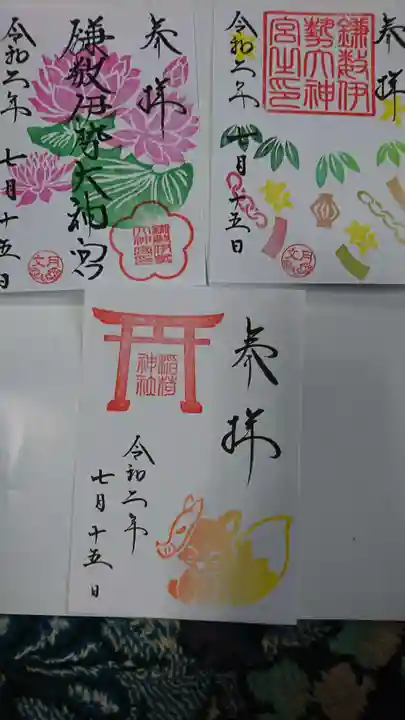 参拝
鎌数伊勢大神宮
令和二年
七月十五日
参拝
鎌数伊
勢大神
宮之印
令和二年
七月十五日
参拝
稲荷
神社
令和二年
七月十五日